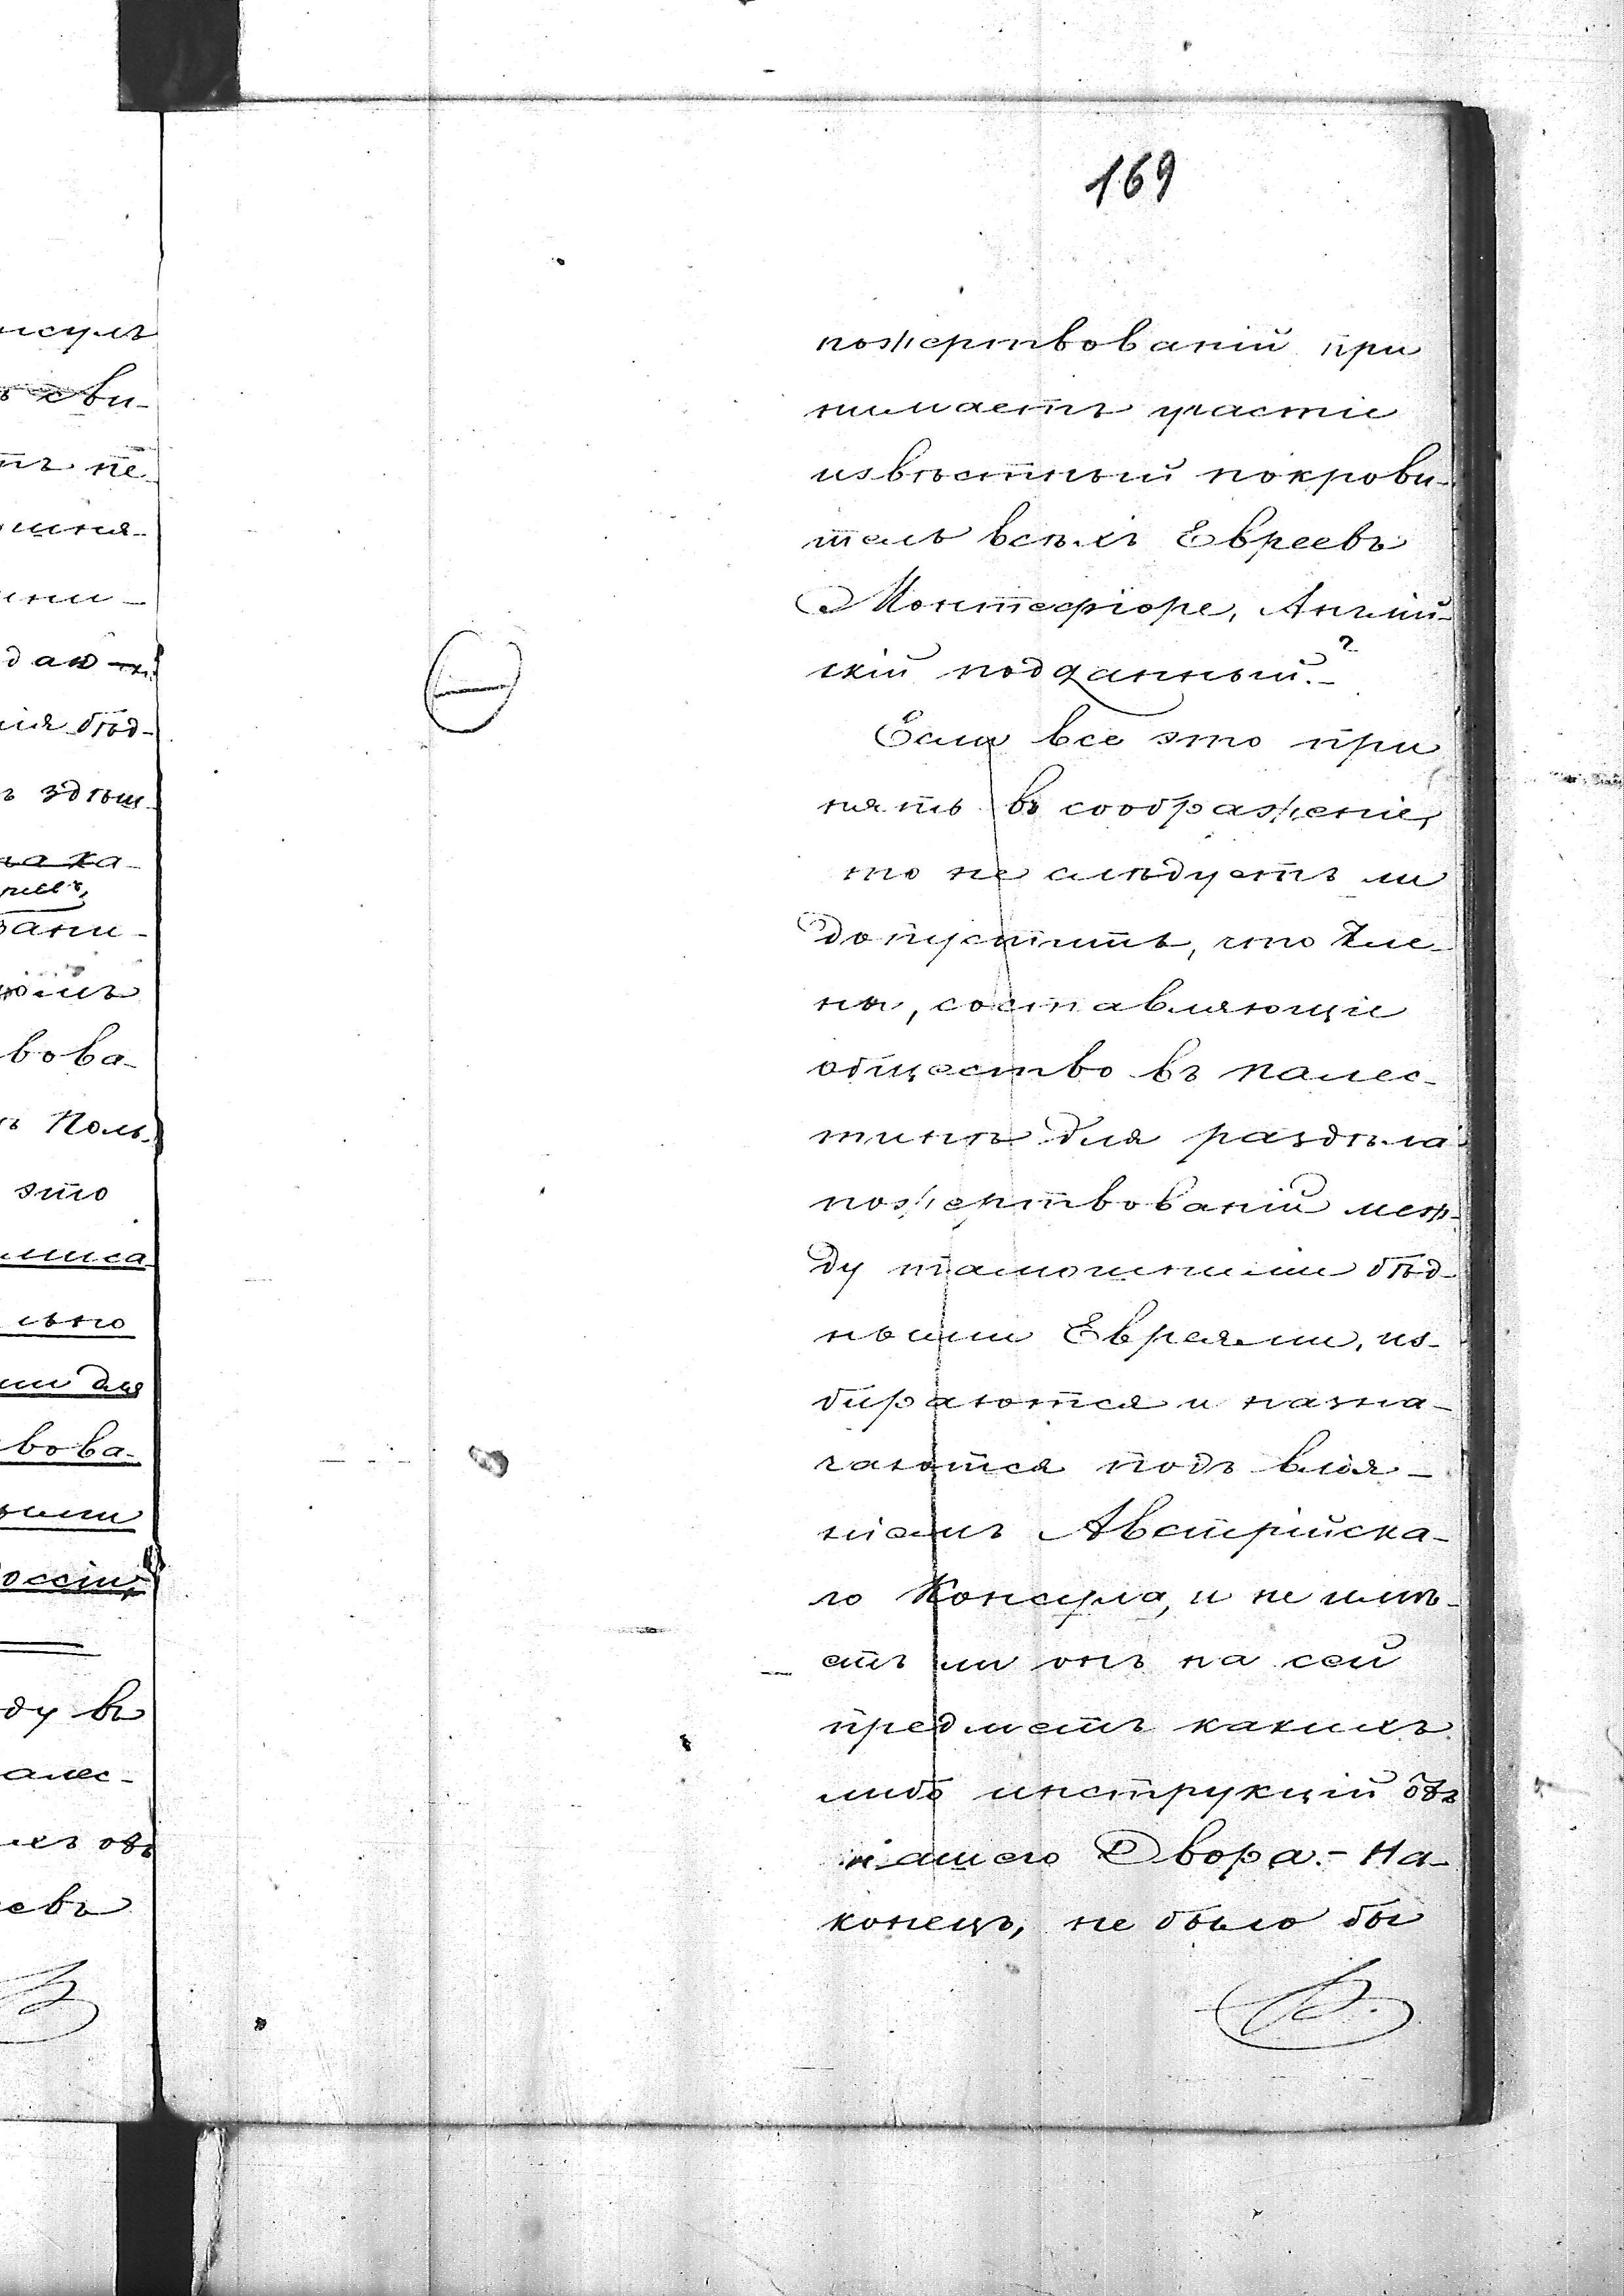 169
пожертвованій при
нимаетъ участіе
извѣстный покрови-
тель всѣхъ Евреевъ
Монтефіоре, Англій-
скій подданный.-?
Если все это при
нять въ соображеніе,
то не слѣдуетъ ли
допустить, что Чле-
ны, составляющіе
общество въ Палес-
тинѣ для раздѣла
пожертвованій меж-
ду тамошними бѣд-
ными Евреями, из-
бираются и назна-
чаются подъ влія-
ніемъ Австрійска-
го Консула, и не имѣ-
етъ ли онъ на сей
предметъ какихъ
либо инструкцій отъ
нашего Двора.- На-
конецъ, не было бы
нсулъ
сви-
тъ не
даю
бѣд-
ъ здѣш-
вова-
ъ Поль-
это
миса
для
вова-
оссіи,
ду въ
алес-
ихъ отъ
евъ